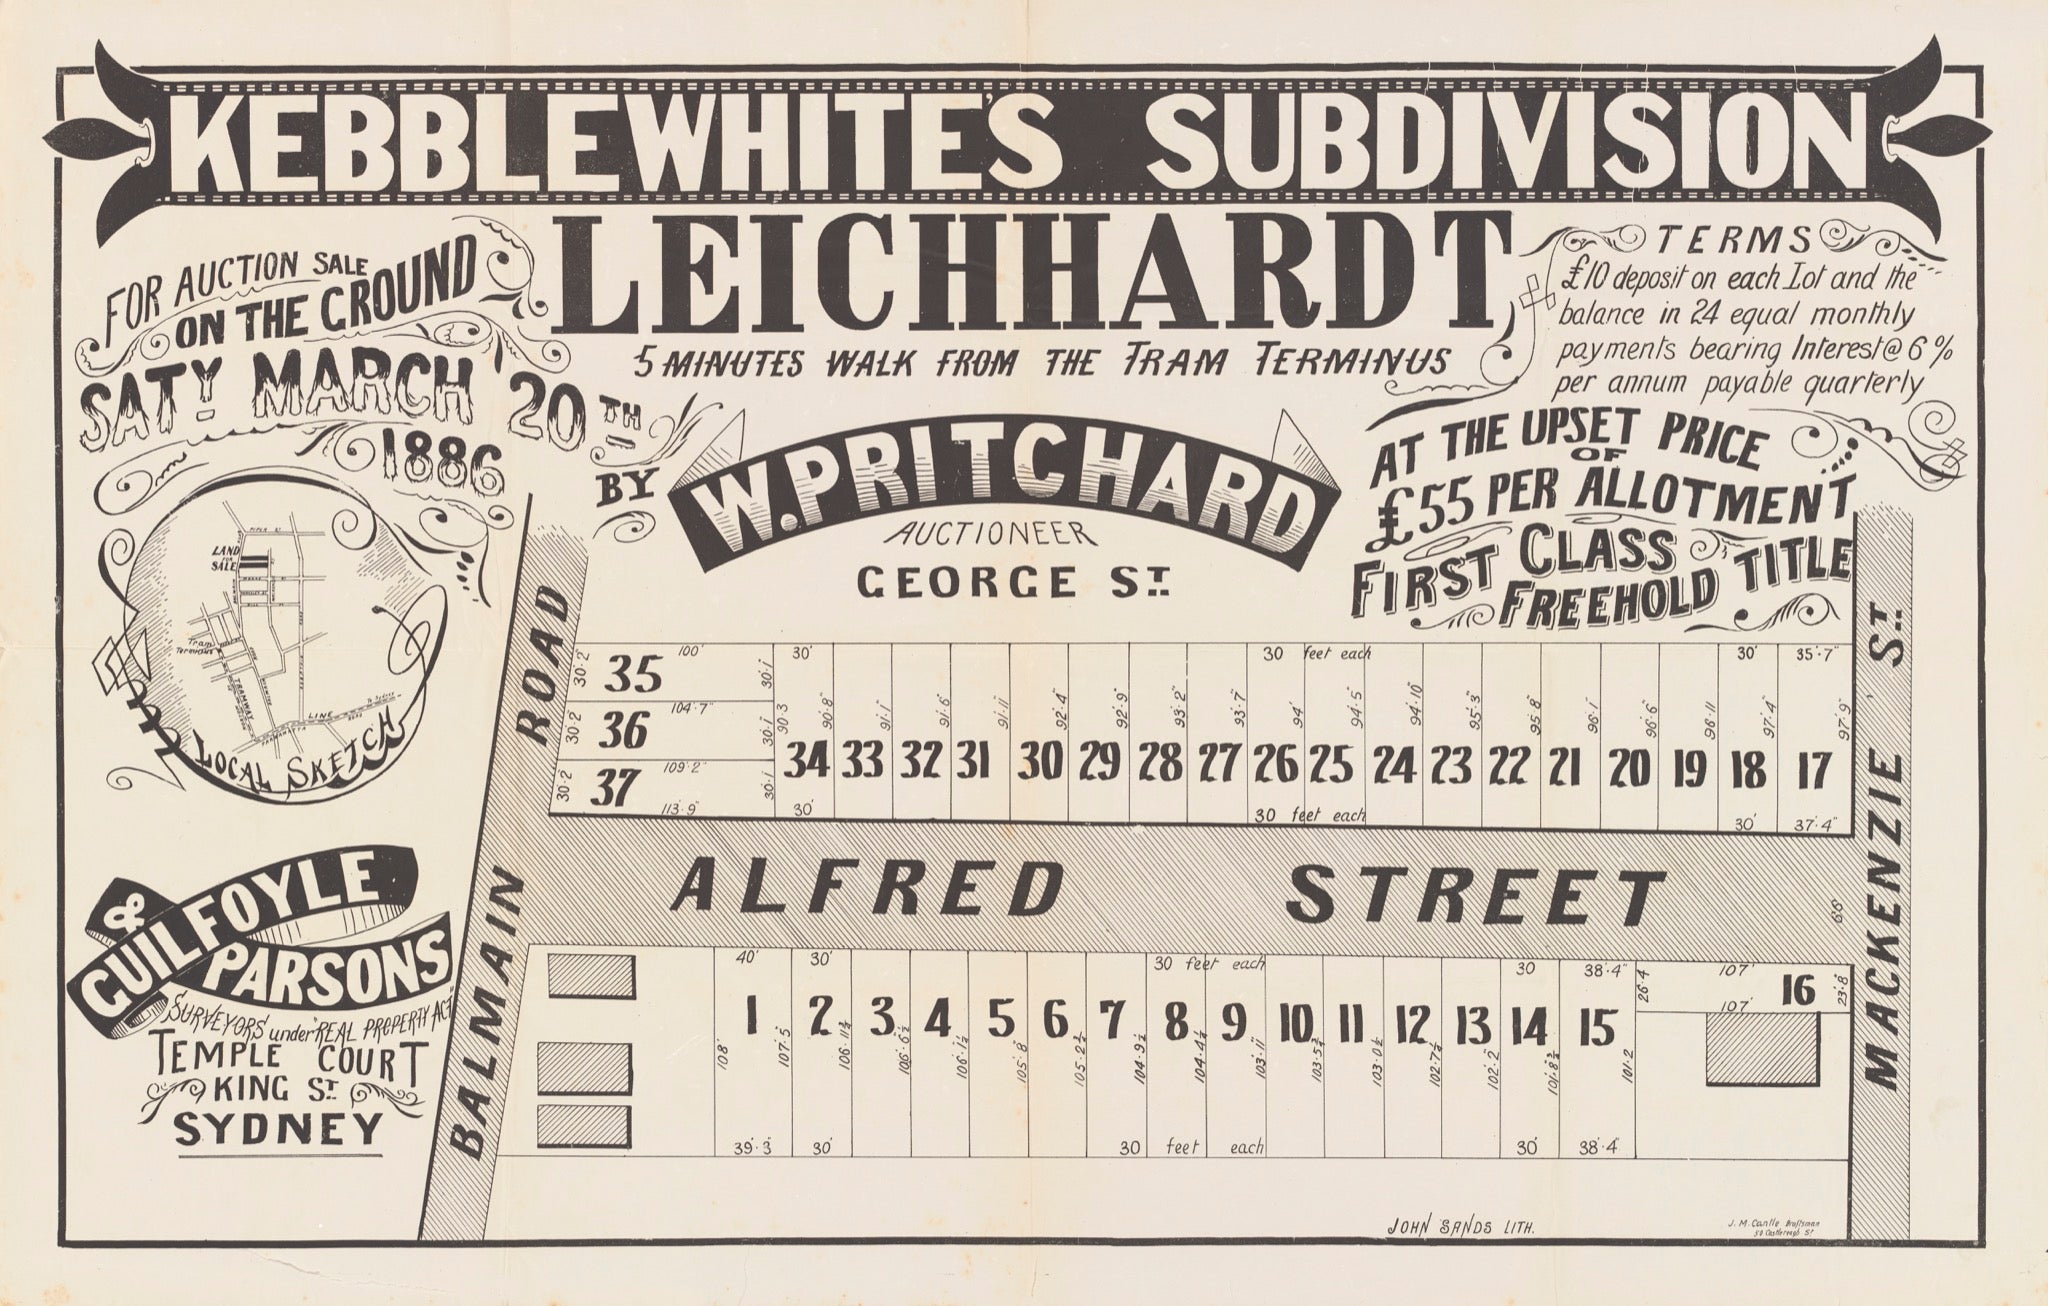 KEBBLEWHITE'S SUBDIVISION
LEICHHARDT
5 MINUTES WALK FROM THE TRAM TERMINUS
FOR AUCTION SALE
ON THE GROUND
SATY MARCH 20TH
1886
BY
W. PRITCHARD
AUCTIONEER
GEORGE ST.
TERMS
£10 deposit on each Lot and the
balance in 24 equal monthly
payments bearing Interest @ 6%
per annum payable quarterly
AT THE UPSET PRICE
OF
£55 PER ALLOTMENT
FIRST CLASS
FREEHOLD TITLE
LAND
FOR
SALE
Tram
Terminus
TRAMWAY
LINE
PARRAMATTA
ROAD
To Sydney
LOCAL SKETCH
GUILFOYLE
& PARSONS
SURVEYORS under "REAL PROPERTY ACT"
TEMPLE COURT
KING ST.
SYDNEY
BALMAIN ROAD
MACKENZIE ST.
30·2 35 100' 30·1
30·2 36 104·7" 30·1
30·2 37 109·2" 30·1
113·9"
30' 30 feet each 30' 35·7"
90·3 90·8" 91·1" 91·6" 91·11" 92·4" 92·9" 93·2" 93·7" 94' 94·5" 94·10" 95·3" 95·8" 96·1" 96·6" 96·11 97·4" 97·9"
34 33 32 31 30 29 28 27 26 25 24 23 22 21 20 19 18 17
30' 30 feet each 30' 37·4"
ALFRED STREET
66'
40' 30' 30 feet each 30 38·4" 107'
1 2 3 4 5 6 7 8 9 10 11 12 13 14 15 16
26·4 23·8"
107'
108' 107·5 106·11¾ 106·6½ 106·1½ 105·8" 105·2¾ 104·9½ 104·4¼ 103·11" 103·5¾ 103·0½ 102·7¼ 102·2" 101·8¾ 101·2
39·3" 30' 30 feet each 30' 38·4"
JOHN SANDS LITH.
J. M. Cantle Draftsman